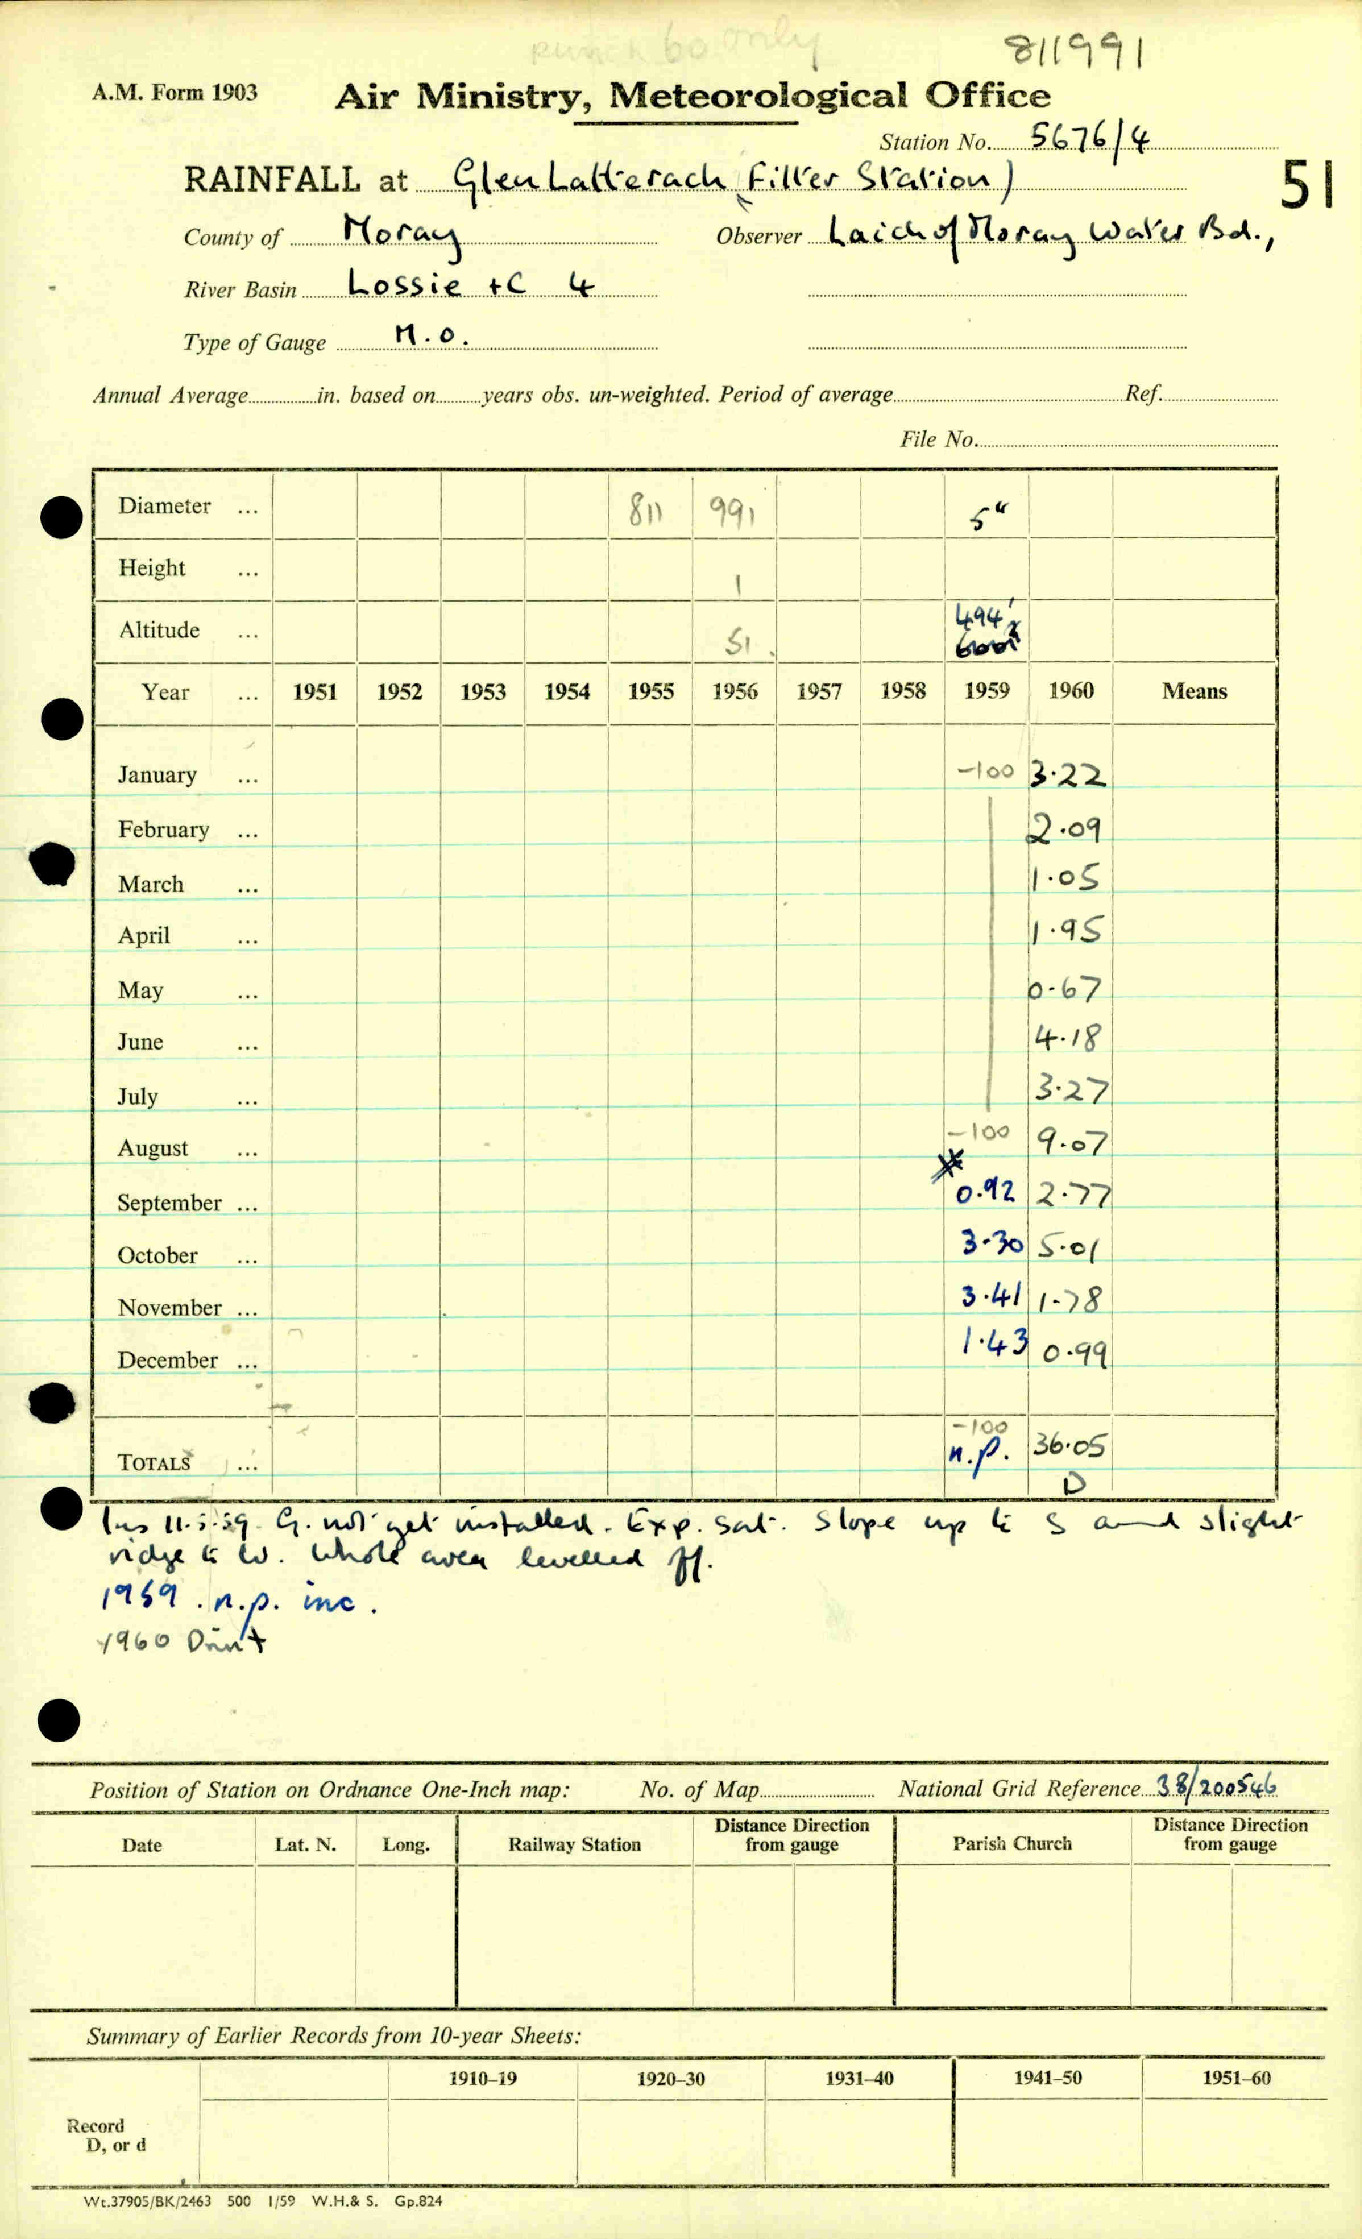 punch 60 only
811991
A.M. Form 1903 Air Ministry, Meteorological Office
Station No. 5676/4
RAINFALL at Glen Latterach (Filter Station) 51
County of Moray Observer Laich of Moray Water Bd.,
River Basin Lossie +C 4
Type of Gauge M.O.
Annual Average in. based on years obs. un-weighted. Period of average Ref.
File No.
Diameter ... 811 991 5"
Height ... 1
Altitude ... 51. 494'
Year ... 1951 1952 1953 1954 1955 1956 1957 1958 1959 1960 Means
January ... -100 3.22
February ... 2.09
March ... 1.05
April ... 1.95
May ... 0.67
June ... 4.18
July ... 3.27
August ... -100 9.07
September ... 0.92 2.77
October ... 3.30 5.01
November ... 3.41 1.78
December ... 1.43 0.99
TOTALS ... -100 n.p. 36.05
D
Ins 11.5.59. G. not yet installed. Exp. sat. Slope up to S and slight
ridge to W. Whole area levelled off.
1959. n.p. inc.
1960 Don't
Position of Station on Ordnance One-Inch map: No. of Map National Grid Reference 38/200546
Date Lat. N. Long. Railway Station Distance Direction from gauge Parish Church Distance Direction from gauge
Summary of Earlier Records from 10-year Sheets:
1910–19 1920–30 1931–40 1941–50 1951–60
Record
D, or d
Wt.37905/BK/2463 500 1/59 W.H.& S. Gp.824